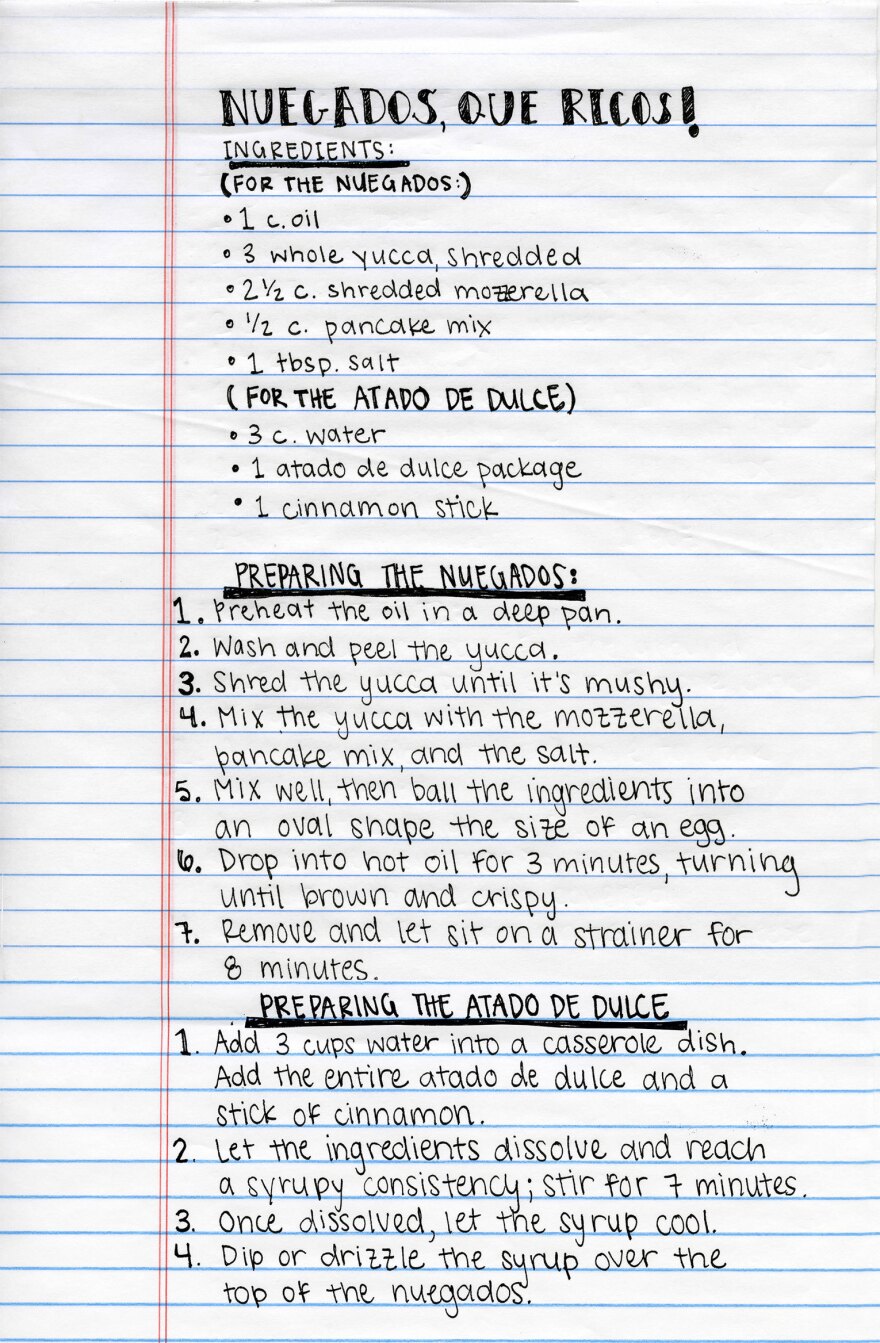 NUEGADOS, QUE RICOS!
INGREDIENTS:
(FOR THE NUEGADOS:)
• 1 c. oil
• 3 whole yucca, shredded
• 2 1/2 c. shredded mozzerella
• 1/2 c. pancake mix
• 1 tbsp. salt
(FOR THE ATADO DE DULCE)
• 3 c. water
• 1 atado de dulce package
• 1 cinnamon stick
PREPARING THE NUEGADOS:
1. Preheat the oil in a deep pan.
2. Wash and peel the yucca.
3. Shred the yucca until it's mushy.
4. Mix the yucca with the mozzerella,
pancake mix, and the salt.
5. Mix well, then ball the ingredients into
an oval shape the size of an egg.
6. Drop into hot oil for 3 minutes, turning
until brown and crispy.
7. Remove and let sit on a strainer for
8 minutes.
PREPARING THE ATADO DE DULCE
1. Add 3 cups water into a casserole dish.
Add the entire atado de dulce and a
stick of cinnamon.
2. Let the ingredients dissolve and reach
a syrupy consistency; stir for 7 minutes.
3. Once dissolved, let the syrup cool.
4. Dip or drizzle the syrup over the
top of the nuegados.